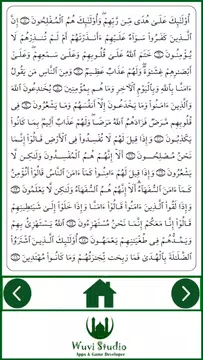 أُوْلَٰٓئِكَ عَلَىٰ هُدًى مِّن رَّبِّهِمْ ۖ وَأُوْلَٰٓئِكَ هُمُ ٱلْمُفْلِحُونَ ۝ إِنَّ
ٱلَّذِينَ كَفَرُوا۟ سَوَآءٌ عَلَيْهِمْ ءَأَنذَرْتَهُمْ أَمْ لَمْ تُنذِرْهُمْ لَا
يُؤْمِنُونَ ۝ خَتَمَ ٱللَّهُ عَلَىٰ قُلُوبِهِمْ وَعَلَىٰ سَمْعِهِمْ ۖ وَعَلَىٰٓ
أَبْصَٰرِهِمْ غِشَٰوَةٌ ۖ وَلَهُمْ عَذَابٌ عَظِيمٌ ۝ وَمِنَ ٱلنَّاسِ مَن يَقُولُ
ءَامَنَّا بِٱللَّهِ وَبِٱلْيَوْمِ ٱلْءَاخِرِ وَمَا هُم بِمُؤْمِنِينَ ۝ يُخَٰدِعُونَ ٱللَّهَ
وَٱلَّذِينَ ءَامَنُوا۟ وَمَا يَخْدَعُونَ إِلَّآ أَنفُسَهُمْ وَمَا يَشْعُرُونَ ۝ فِى
قُلُوبِهِم مَّرَضٌ فَزَادَهُمُ ٱللَّهُ مَرَضًا ۖ وَلَهُمْ عَذَابٌ أَلِيمٌۢ بِمَا كَانُوا۟
يَكْذِبُونَ ۝ وَإِذَا قِيلَ لَهُمْ لَا تُفْسِدُوا۟ فِى ٱلْأَرْضِ قَالُوٓا۟ إِنَّمَا
نَحْنُ مُصْلِحُونَ ۝ أَلَآ إِنَّهُمْ هُمُ ٱلْمُفْسِدُونَ وَلَٰكِن لَّا
يَشْعُرُونَ ۝ وَإِذَا قِيلَ لَهُمْ ءَامِنُوا۟ كَمَآ ءَامَنَ ٱلنَّاسُ قَالُوٓا۟ أَنُؤْمِنُ
كَمَآ ءَامَنَ ٱلسُّفَهَآءُ ۗ أَلَآ إِنَّهُمْ هُمُ ٱلسُّفَهَآءُ وَلَٰكِن لَّا يَعْلَمُونَ ۝
وَإِذَا لَقُوا۟ ٱلَّذِينَ ءَامَنُوا۟ قَالُوٓا۟ ءَامَنَّا وَإِذَا خَلَوْا۟ إِلَىٰ شَيَٰطِينِهِمْ
قَالُوٓا۟ إِنَّا مَعَكُمْ إِنَّمَا نَحْنُ مُسْتَهْزِءُونَ ۝ ٱللَّهُ يَسْتَهْزِئُ بِهِمْ
وَيَمُدُّهُمْ فِى طُغْيَٰنِهِمْ يَعْمَهُونَ ۝ أُوْلَٰٓئِكَ ٱلَّذِينَ ٱشْتَرَوُا۟
ٱلضَّلَٰلَةَ بِٱلْهُدَىٰ فَمَا رَبِحَت تِّجَٰرَتُهُمْ وَمَا كَانُوا۟ مُهْتَدِينَ ۝
Wuvi Studio
Apps & Game Developer